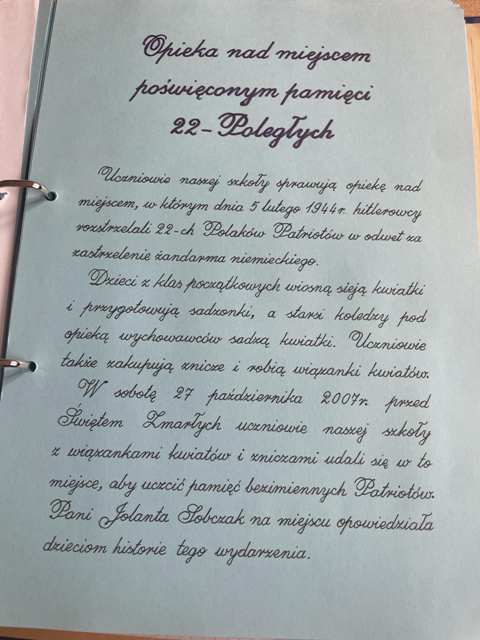 Opieka nad miejscem
poświęconym pamięci
22-Poległych
Uczniowie naszej szkoły sprawują opiekę nad
miejscem, w którym dnia 5 lutego 1944r. hitlerowcy
rozstrzelali 22-ch Polaków Patriotów w odwet za
zastrzelenie żandarma niemieckiego.
Dzieci z klas początkowych wiosną sieją kwiatki
i przygotowują sadzonki, a starsi koledzy pod
opieką wychowawców sadzą kwiatki. Uczniowie
także zakupują znicze i robią wiązanki kwiatów.
W sobotę 27 października 2007r. przed
Świętem Zmarłych uczniowie naszej szkoły
z wiązankami kwiatów i zniczami udali się w to
miejsce, aby uczcić pamięć bezimiennych Patriotów.
Pani Jolanta Sobczak na miejscu opowiedziała
dzieciom historie tego wydarzenia.